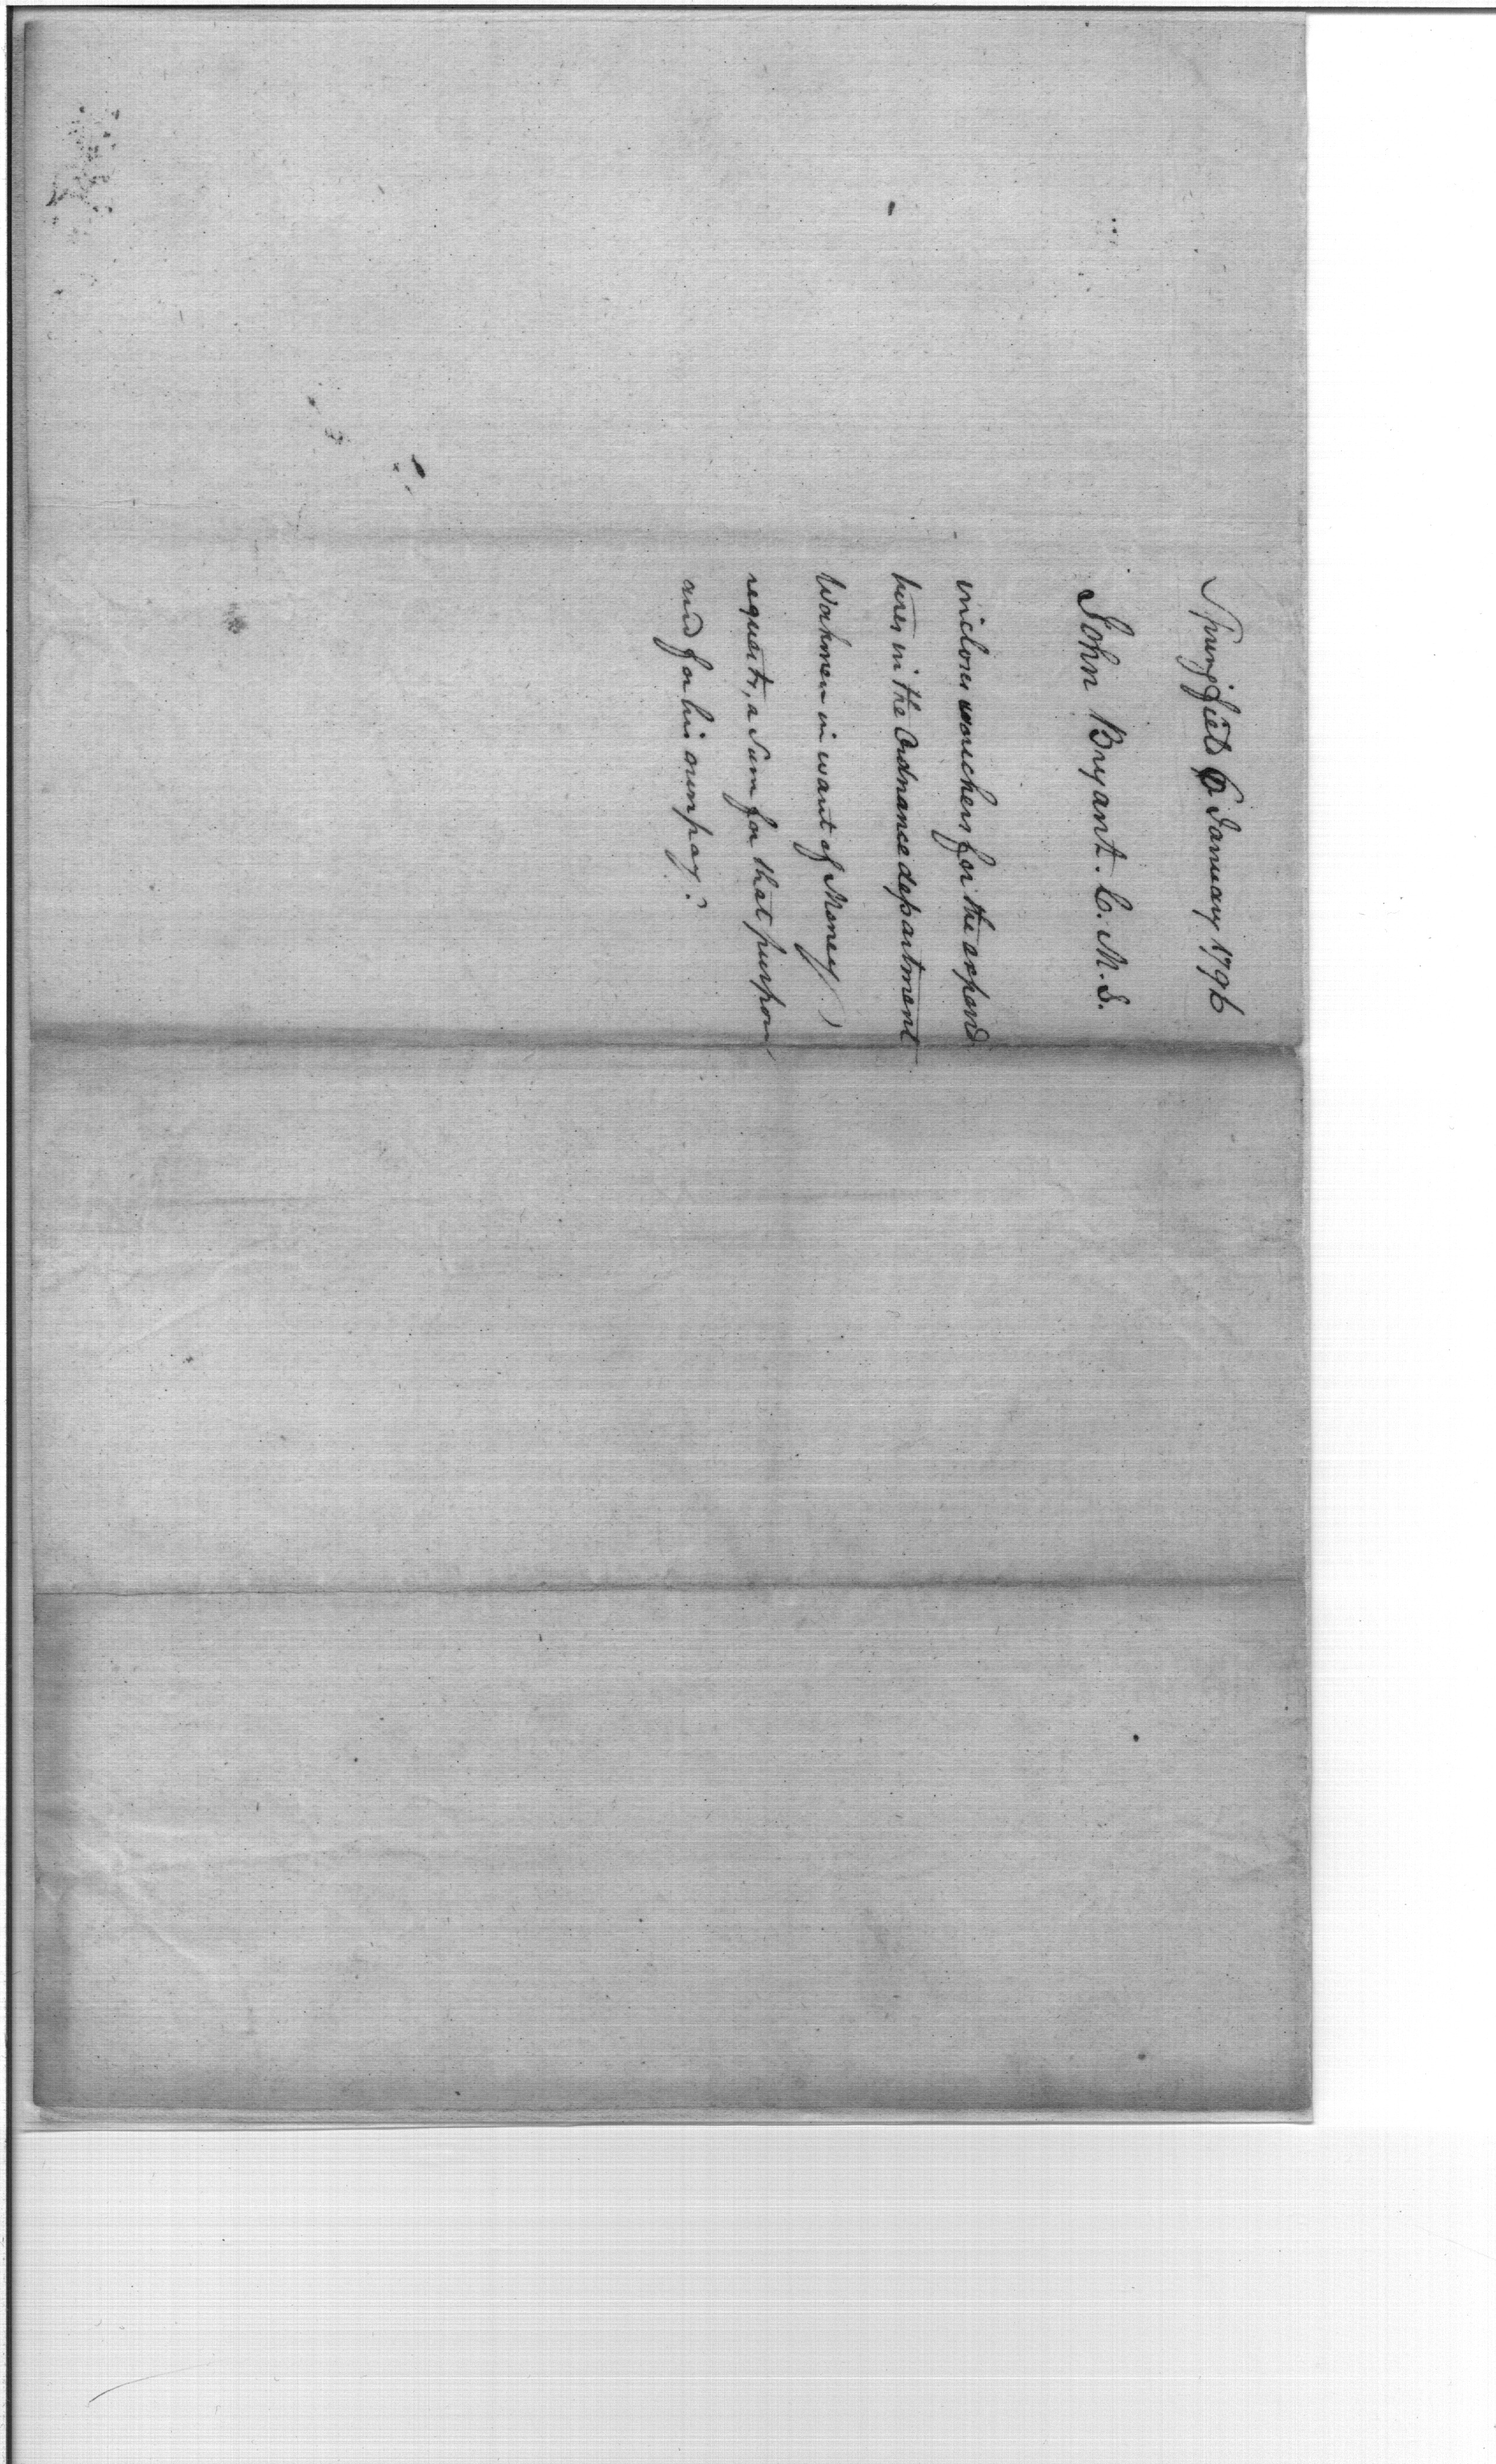 Springfield 6 January 1796
John Bryant. C. M. S.
incloses vouchers for the expend
tures in the Ordnance department
Workmen in want of Money.)
requests, a Sum for that purpose
and for his own pay.?